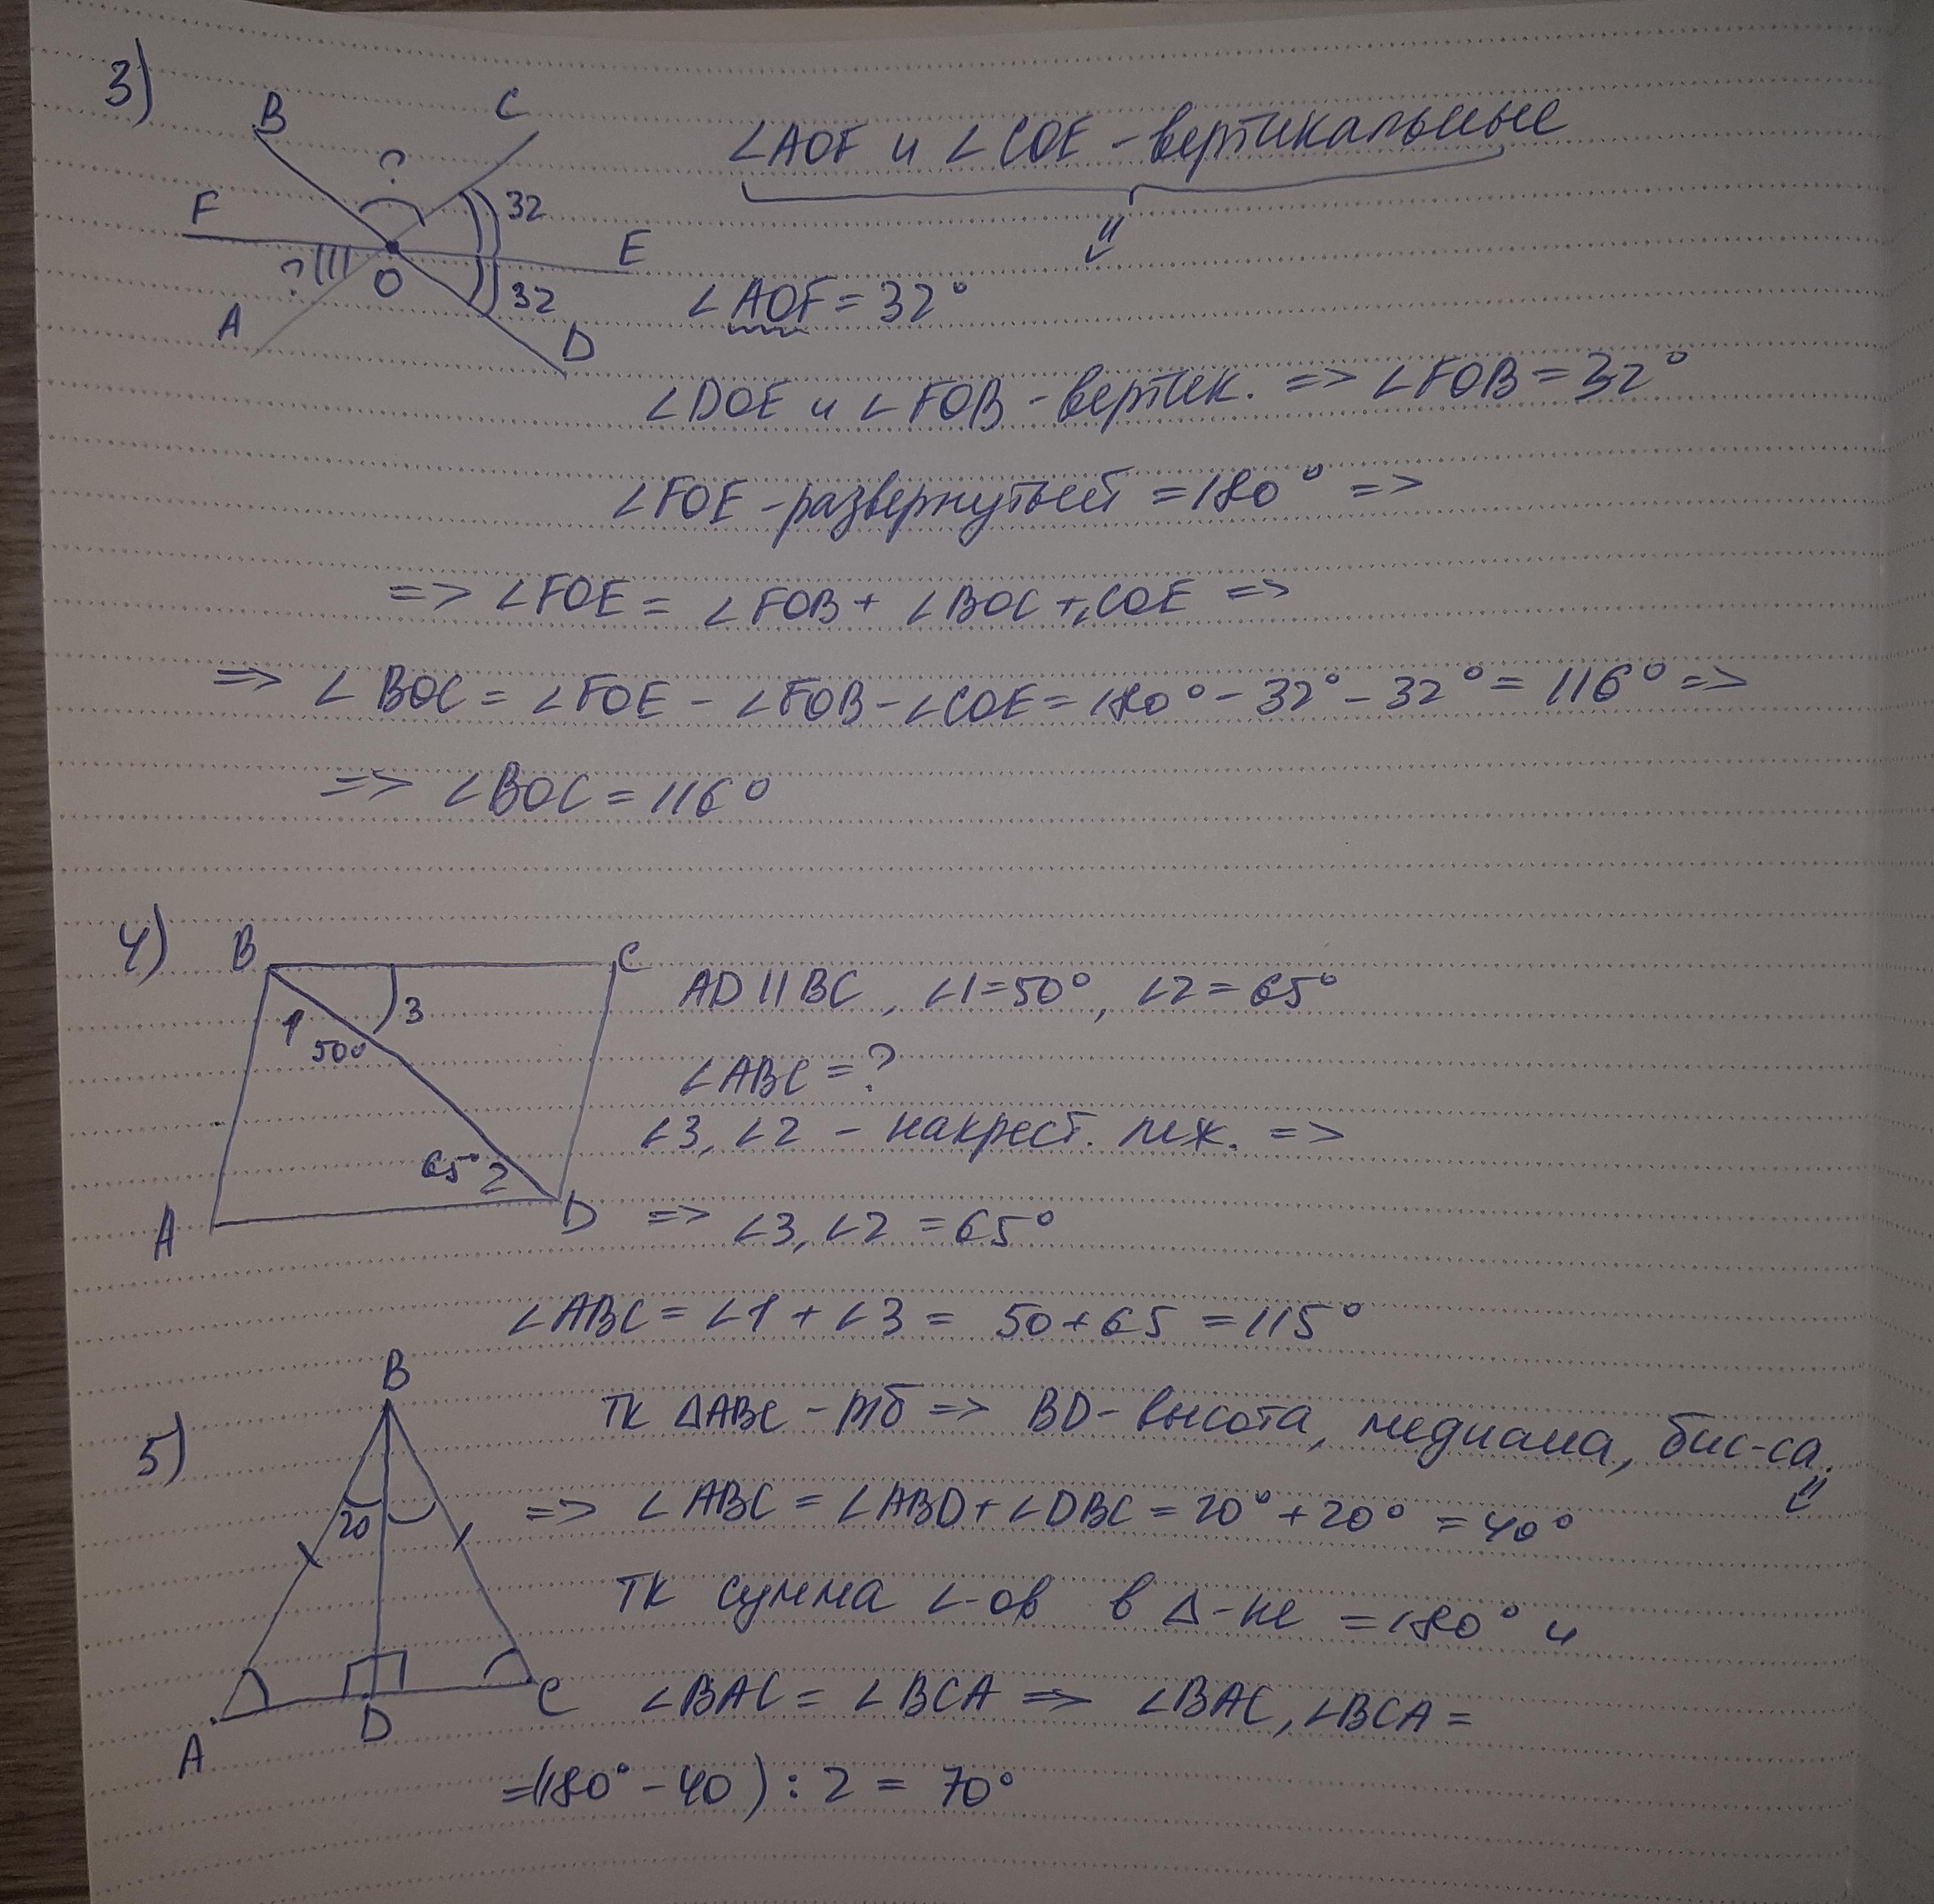 3)
B
C
?
F
32
E
?
O
32
A
D
∠AOF и ∠COE - вертикальные
⇓
∠AOF = 32°
∠DOE и ∠FOB - вертик. => ∠FOB = 32°
∠FOE - развернутый = 180° =>
=> ∠FOE = ∠FOB + ∠BOC + ∠COE =>
=> ∠BOC = ∠FOE - ∠FOB - ∠COE = 180° - 32° - 32° = 116° =>
=> ∠BOC = 116°
4)
B
C
1
3
50°
65° 2
A
D
AD || BC, ∠1 = 50°, ∠2 = 65°
∠ABC = ?
∠3, ∠2 - накрест. леж. =>
=> ∠3, ∠2 = 65°
∠ABC = ∠1 + ∠3 = 50 + 65 = 115°
5)
B
20
A
D
C
тк ΔABC - р/б => BD - высота, медиана, бис-са.
⇓
=> ∠ABC = ∠ABD + ∠DBC = 20° + 20° = 40°
тк сумма ∠-ов в Δ-ке = 180° и
∠BAC = ∠BCA => ∠BAC, ∠BCA =
= (180° - 40) : 2 = 70°